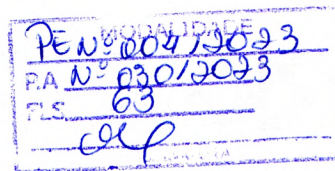 MODALIDADE
PE Nº 004/2023
P.A Nº 030/2023
FLS. 63